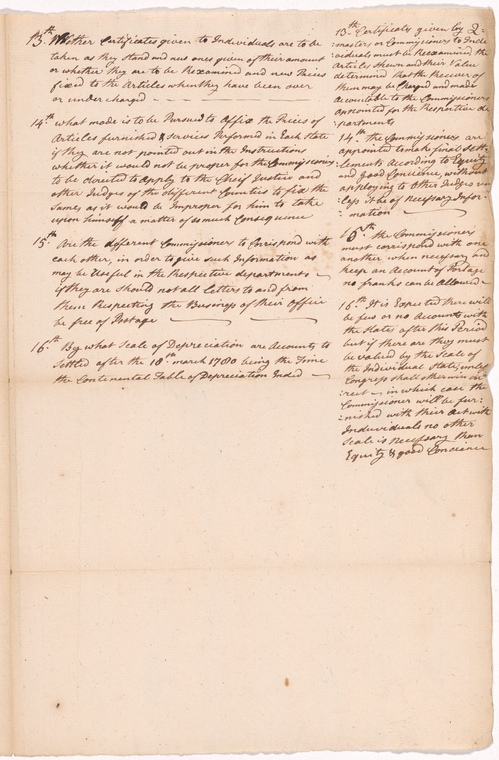 13.th Whether Certificates given to Individuals are to be
taken as they stand and new ones given of their amount
or whether they are to be Rexamined and new Prices
fixed to the Articles when they have been over
or under charged
14.th what mode is to be Pursued to Affix the Prices of
Articles furnished & services Performed in Each State
if they are not pointed out in the Instructions
whether it would not be proper for the Commissioners
to be directed to apply to the Cheif Justice and
other Judges of the different Counties to fix the
same, as it would be Improper for him to take
upon himself a matter of so much Consequence
15.th Are the different Commissioners to Corrispond with
each other, in order to give such Information as
may be Useful in the Respective departments
if they are should not all Letters to and from
them Respecting the Business of their Office
be free of Postage
16.th By what Scale of Depreciation are Accounts to be
Settled after the 18th march 1780 being the Time
the Continental Table of Depreciation Ended
13.th Certificats given by Q-
:masters or Commissioners to Indi-
:viduals must be Reexamined the
Articles shewn and their Value
determined that the Receiver of
them may be Charged and made
Accountable to the Commissioners
appointed for the Respective de
:partments
14.th the Commissioners are
appointed to make final Settle
:lements According to Equity
and Good Concience, without
applying to Other Judges un
:less it be of necessary Infor-
:mation
15.th the Commissioners
must correspond with one
another when necessary and
keep an Account of Postage
no franks can be allowed
16.th It is Expected there will
be few or no Accounts with
the States after this Period
but if there are they must
be valued by the Scale of
the Individual State, unless
Congress shall otherwise di
:rect - in which case the
Commissioner will be fur-
:nished with their Act with
Individuals no other
Scale is necessary than
Equity & good Concience